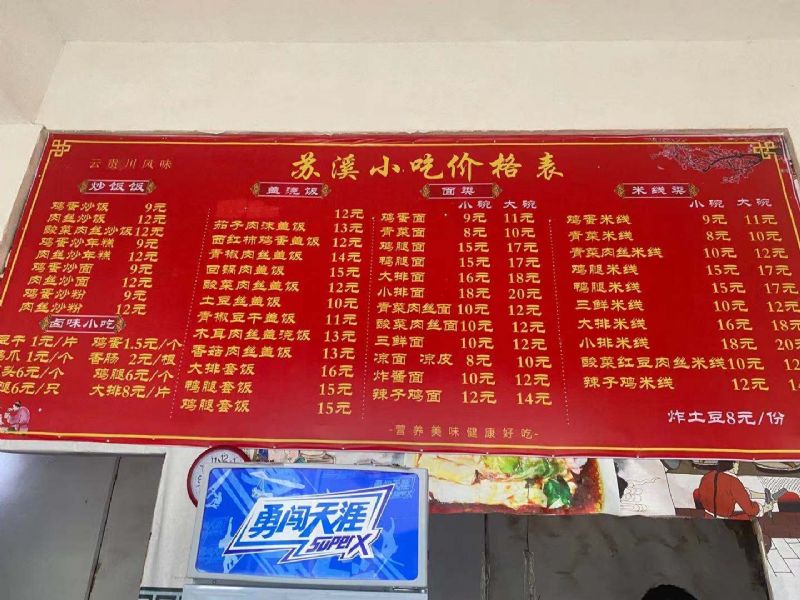 云贵川风味
苏溪小吃价格表
炒饭饭
鸡蛋炒饭 9元
肉丝炒饭 12元
酸菜肉丝炒饭 12元
鸡蛋炒年糕 9元
肉丝炒年糕 12元
鸡蛋炒面 9元
肉丝炒面 12元
鸡蛋炒粉 9元
肉丝炒粉 12元
卤味小吃
豆干 1元/片 鸡蛋 1.5元/个
爪 1元/个 香肠 2元/根
头 6元/个 鸡腿 6元/个
腿 6元/只 大排 8元/片
盖浇饭
12元
茄子肉沫盖饭 13元
西红柿鸡蛋盖饭 12元
青椒肉丝盖饭 14元
回锅肉盖饭 15元
酸菜肉丝盖饭 12元
土豆丝盖饭 10元
青椒豆干盖饭 11元
木耳肉丝盖浇饭 13元
香菇肉丝盖饭 13元
大排套饭 16元
鸭腿套饭 15元
鸡腿套饭 15元
面类
小碗 大碗
鸡蛋面 9元 11元
青菜面 8元 10元
鸡腿面 15元 17元
鸭腿面 15元 17元
大排面 16元 18元
小排面 18元 20元
青菜肉丝面 10元 12元
酸菜肉丝面 10元 12元
三鲜面 10元 12元
凉面 凉皮 8元 10元
炸酱面 10元 12元
辣子鸡面 12元 14元
米线类
小碗 大碗
鸡蛋米线 9元 11元
青菜米线 8元 10元
青菜肉丝米线 10元 12元
鸡腿米线 15元 17元
鸭腿米线 15元 17元
三鲜米线 10元 12元
大排米线 16元 18元
小排米线 18元 20
酸菜红豆肉丝米线 10元 12
辣子鸡米线 12元 14
炸土豆8元/份
-营养美味健康好吃-
勇闯天涯
SUPERX